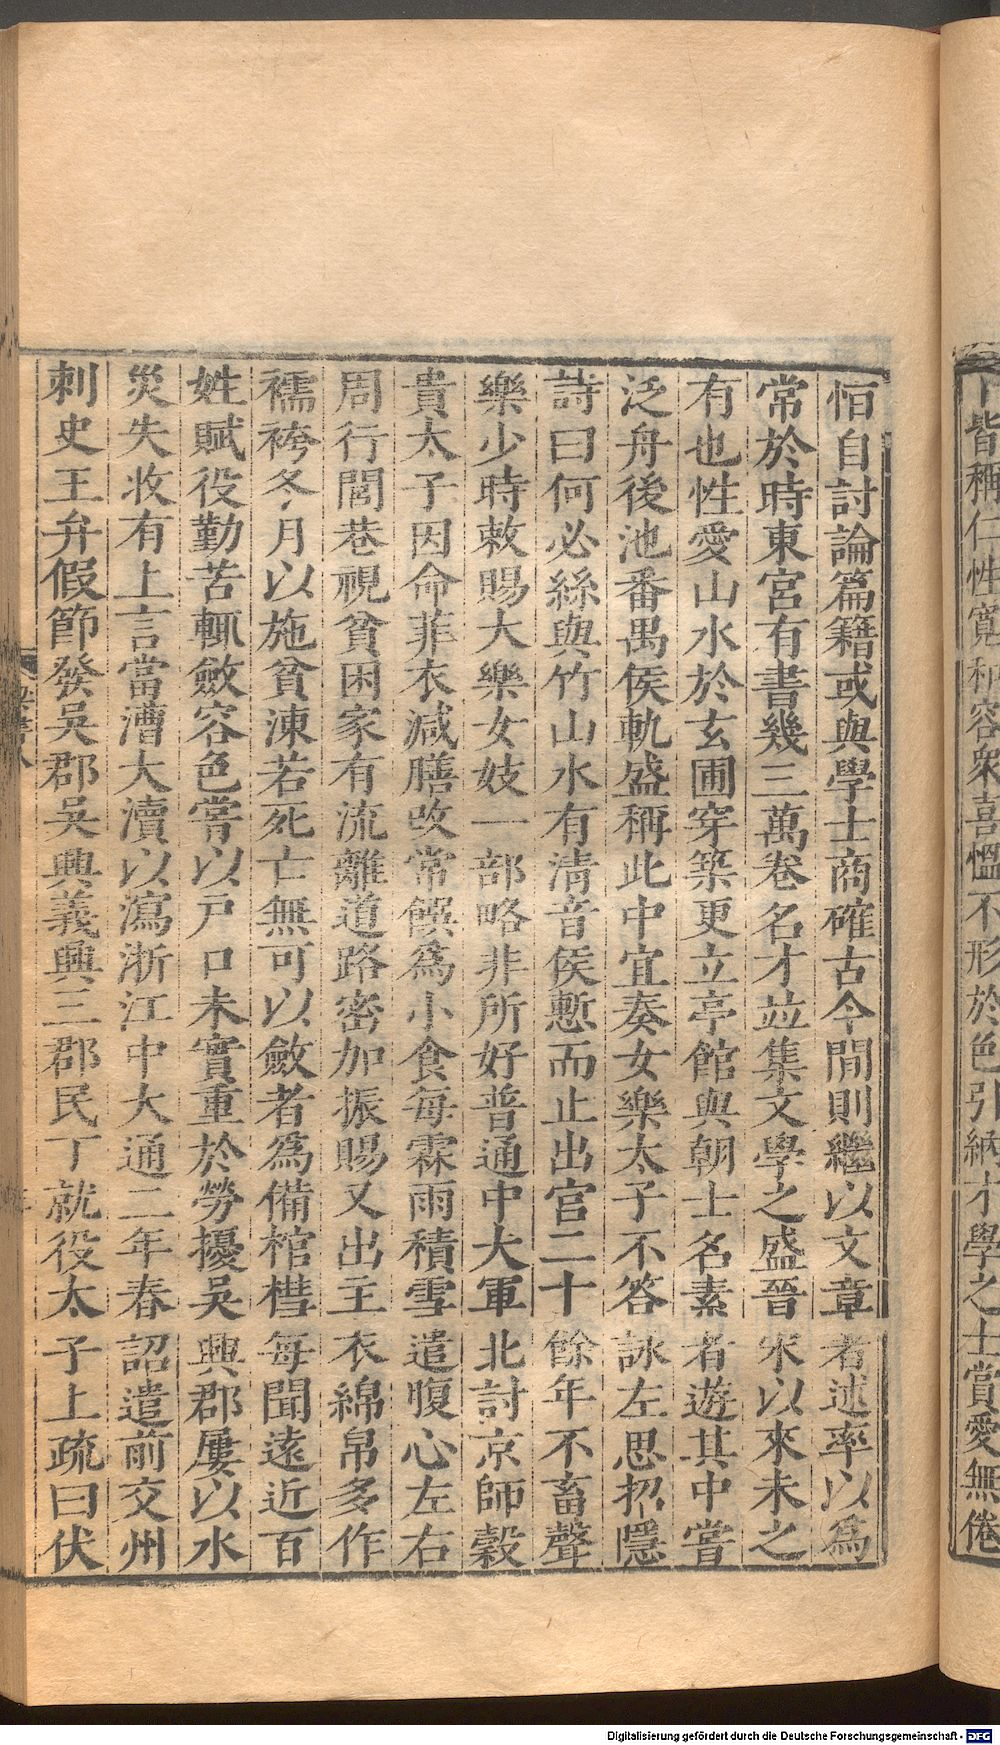 下皆稱仁性寬和容衆喜慍不形於色引納才學之士賞愛無倦
恒自討論篇籍或與學士商確古今閒則繼以文章著述率以爲
常於時東宮有書幾三萬卷名才並集文學之盛晉宋以來未之
有也性愛山水於玄圃穿築更立亭館與朝士名素者遊其中嘗
泛舟後池番禺侯軌盛稱此中宜奏女樂太子不答詠左思招隱
詩曰何必絲與竹山水有清音侯慙而止出宮二十餘年不畜聲
樂少時敕賜大樂女妓一部略非所好普通中大軍北討京師穀
貴太子因命菲衣減膳改常饌爲小食每霖雨積雪遣腹心左右
周行閭巷視貧困家有流離道路密加振賜又出主衣綿帛多作
襦袴冬月以施貧凍若死亡無可以斂者爲備棺槥每聞遠近百
姓賦役勤苦輒斂容色嘗以戸口未實重於勞擾吳興郡屢以水
災失收有上言當漕大瀆以瀉浙江中大通二年春詔遣前交州
刺史王弁假節發吳郡吳興義興三郡民丁就役太子上疏曰伏
梁書八
Digitalisierung gefördert durch die Deutsche Forschungsgemeinschaft - DFG